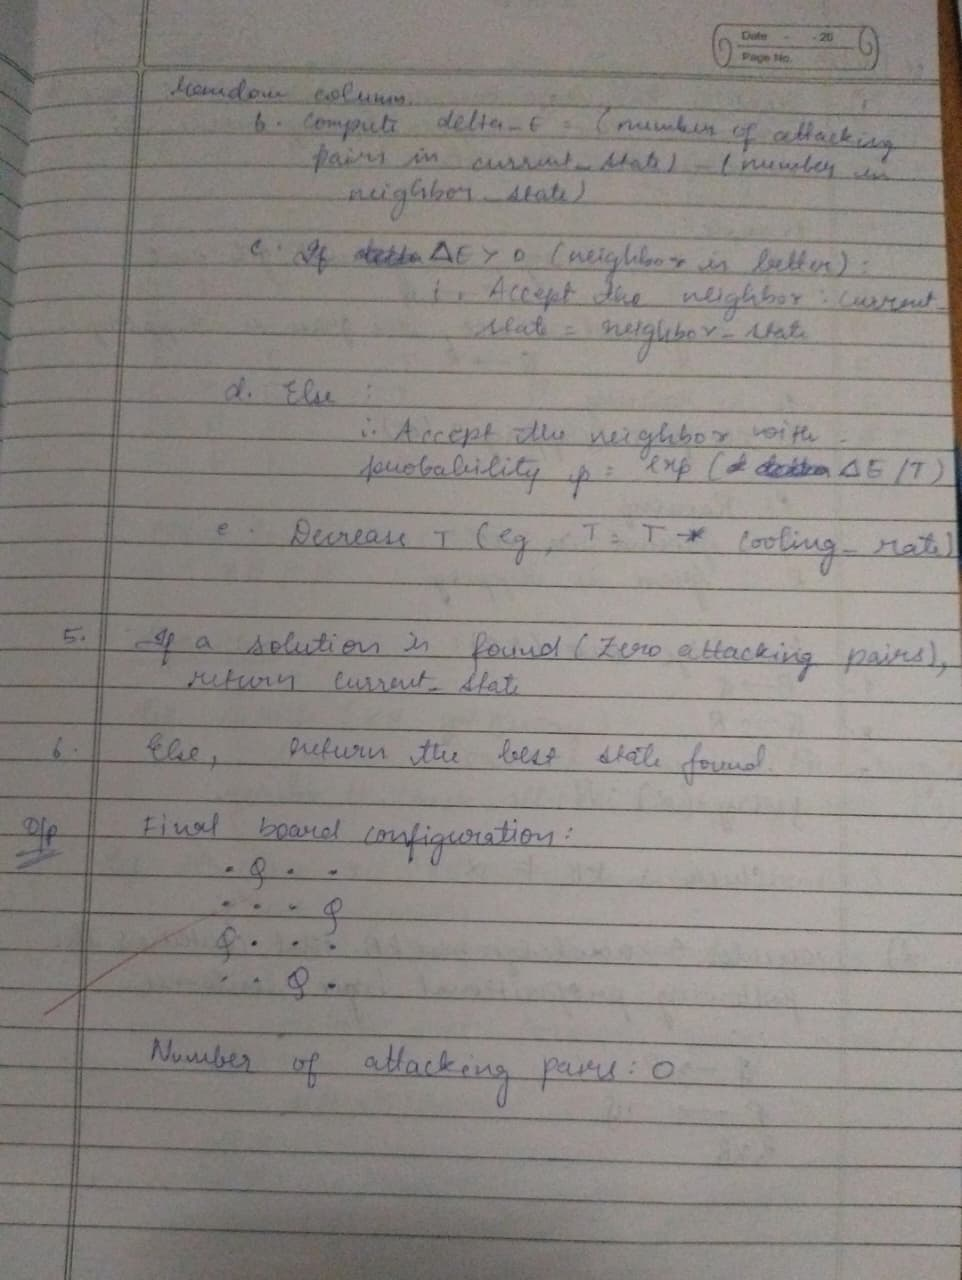 Date - - 20
Page No.
random column.
b. Compute delta_E = (number of attacking
pairs in current_state) - (number in
neighbor_state)
c. If ΔE > 0 (neighbor is better):
i. Accept the neighbor: current_
state = neighbor_state
d. Else :
i. Accept the neighbor with
probability p = exp (ΔE/T)
e. Decrease T (eg, T = T * cooling_rate)
5. If a solution is found (Zero attacking pairs),
return current_state
6. Else, return the best state found.
O/p Final board configuration:
. Q . .
. . . Q
Q . . .
. . Q .
Number of attacking pairs: 0